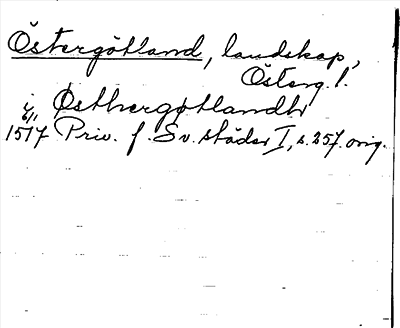 Östergötland, landskap,
Österg. l.
i Østhergøtlandh
1517 6/11 Priv. f. Sv. städer I, s. 257. orig.